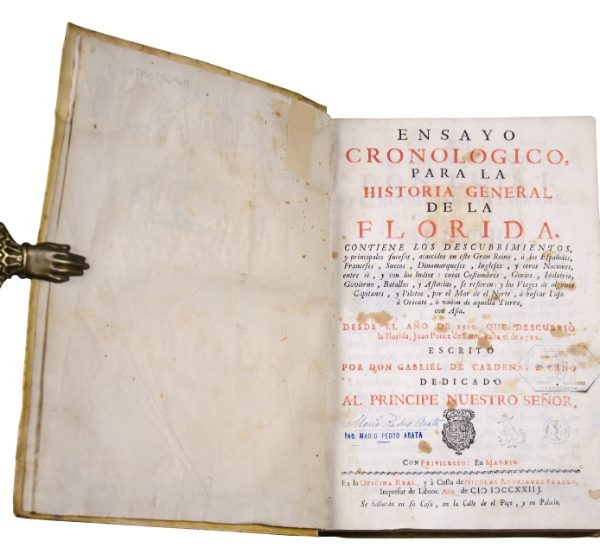 IMPORTANTE
ENSAYO
CRONOLOGICO,
PARA LA
HISTORIA GENERAL
DE LA
FLORIDA.
CONTIENE LOS DESCUBRIMIENTOS,
y principales sucesos, acaecidos en este Gran Reino, à los Españoles,
Franceses, Suecos, Dinamarqueses, Ingleses, y otras Naciones,
entre sì, y con los Indios: cuias Costumbres, Genios, Idolatria,
Govierno, Batallas, y Astucias, se refieren: y los Viages de algunos
Capitanes, y Pilotos, por el Mar de el Norte, à buscar Paso
à Oriente, ò vnion de aquella Tierra,
con Asia.
DESDE EL AÑO DE 1512. QUE DESCUBRIÒ
la Florida, Juan Ponce de Leon, hasta el de 1722.
ESCRITO
POR DON GABRIEL DE CARDENAS Z CANO
DEDICADO
AL PRINCIPE NUESTRO SEÑOR.
Mario Pedro Arata
Ing. MARIO PEDRO ARATA
CON PRIVILEGIO: En MADRID.
En la OFICINA REAL, y à Costa de NICOLAS RODRIGUEZ FRANCO,
Impresor de Libros. Año de CIƆ IƆCCXXIIJ.
Se hallaràn en su Casa, en la Calle de el Poço, y en Palacio.